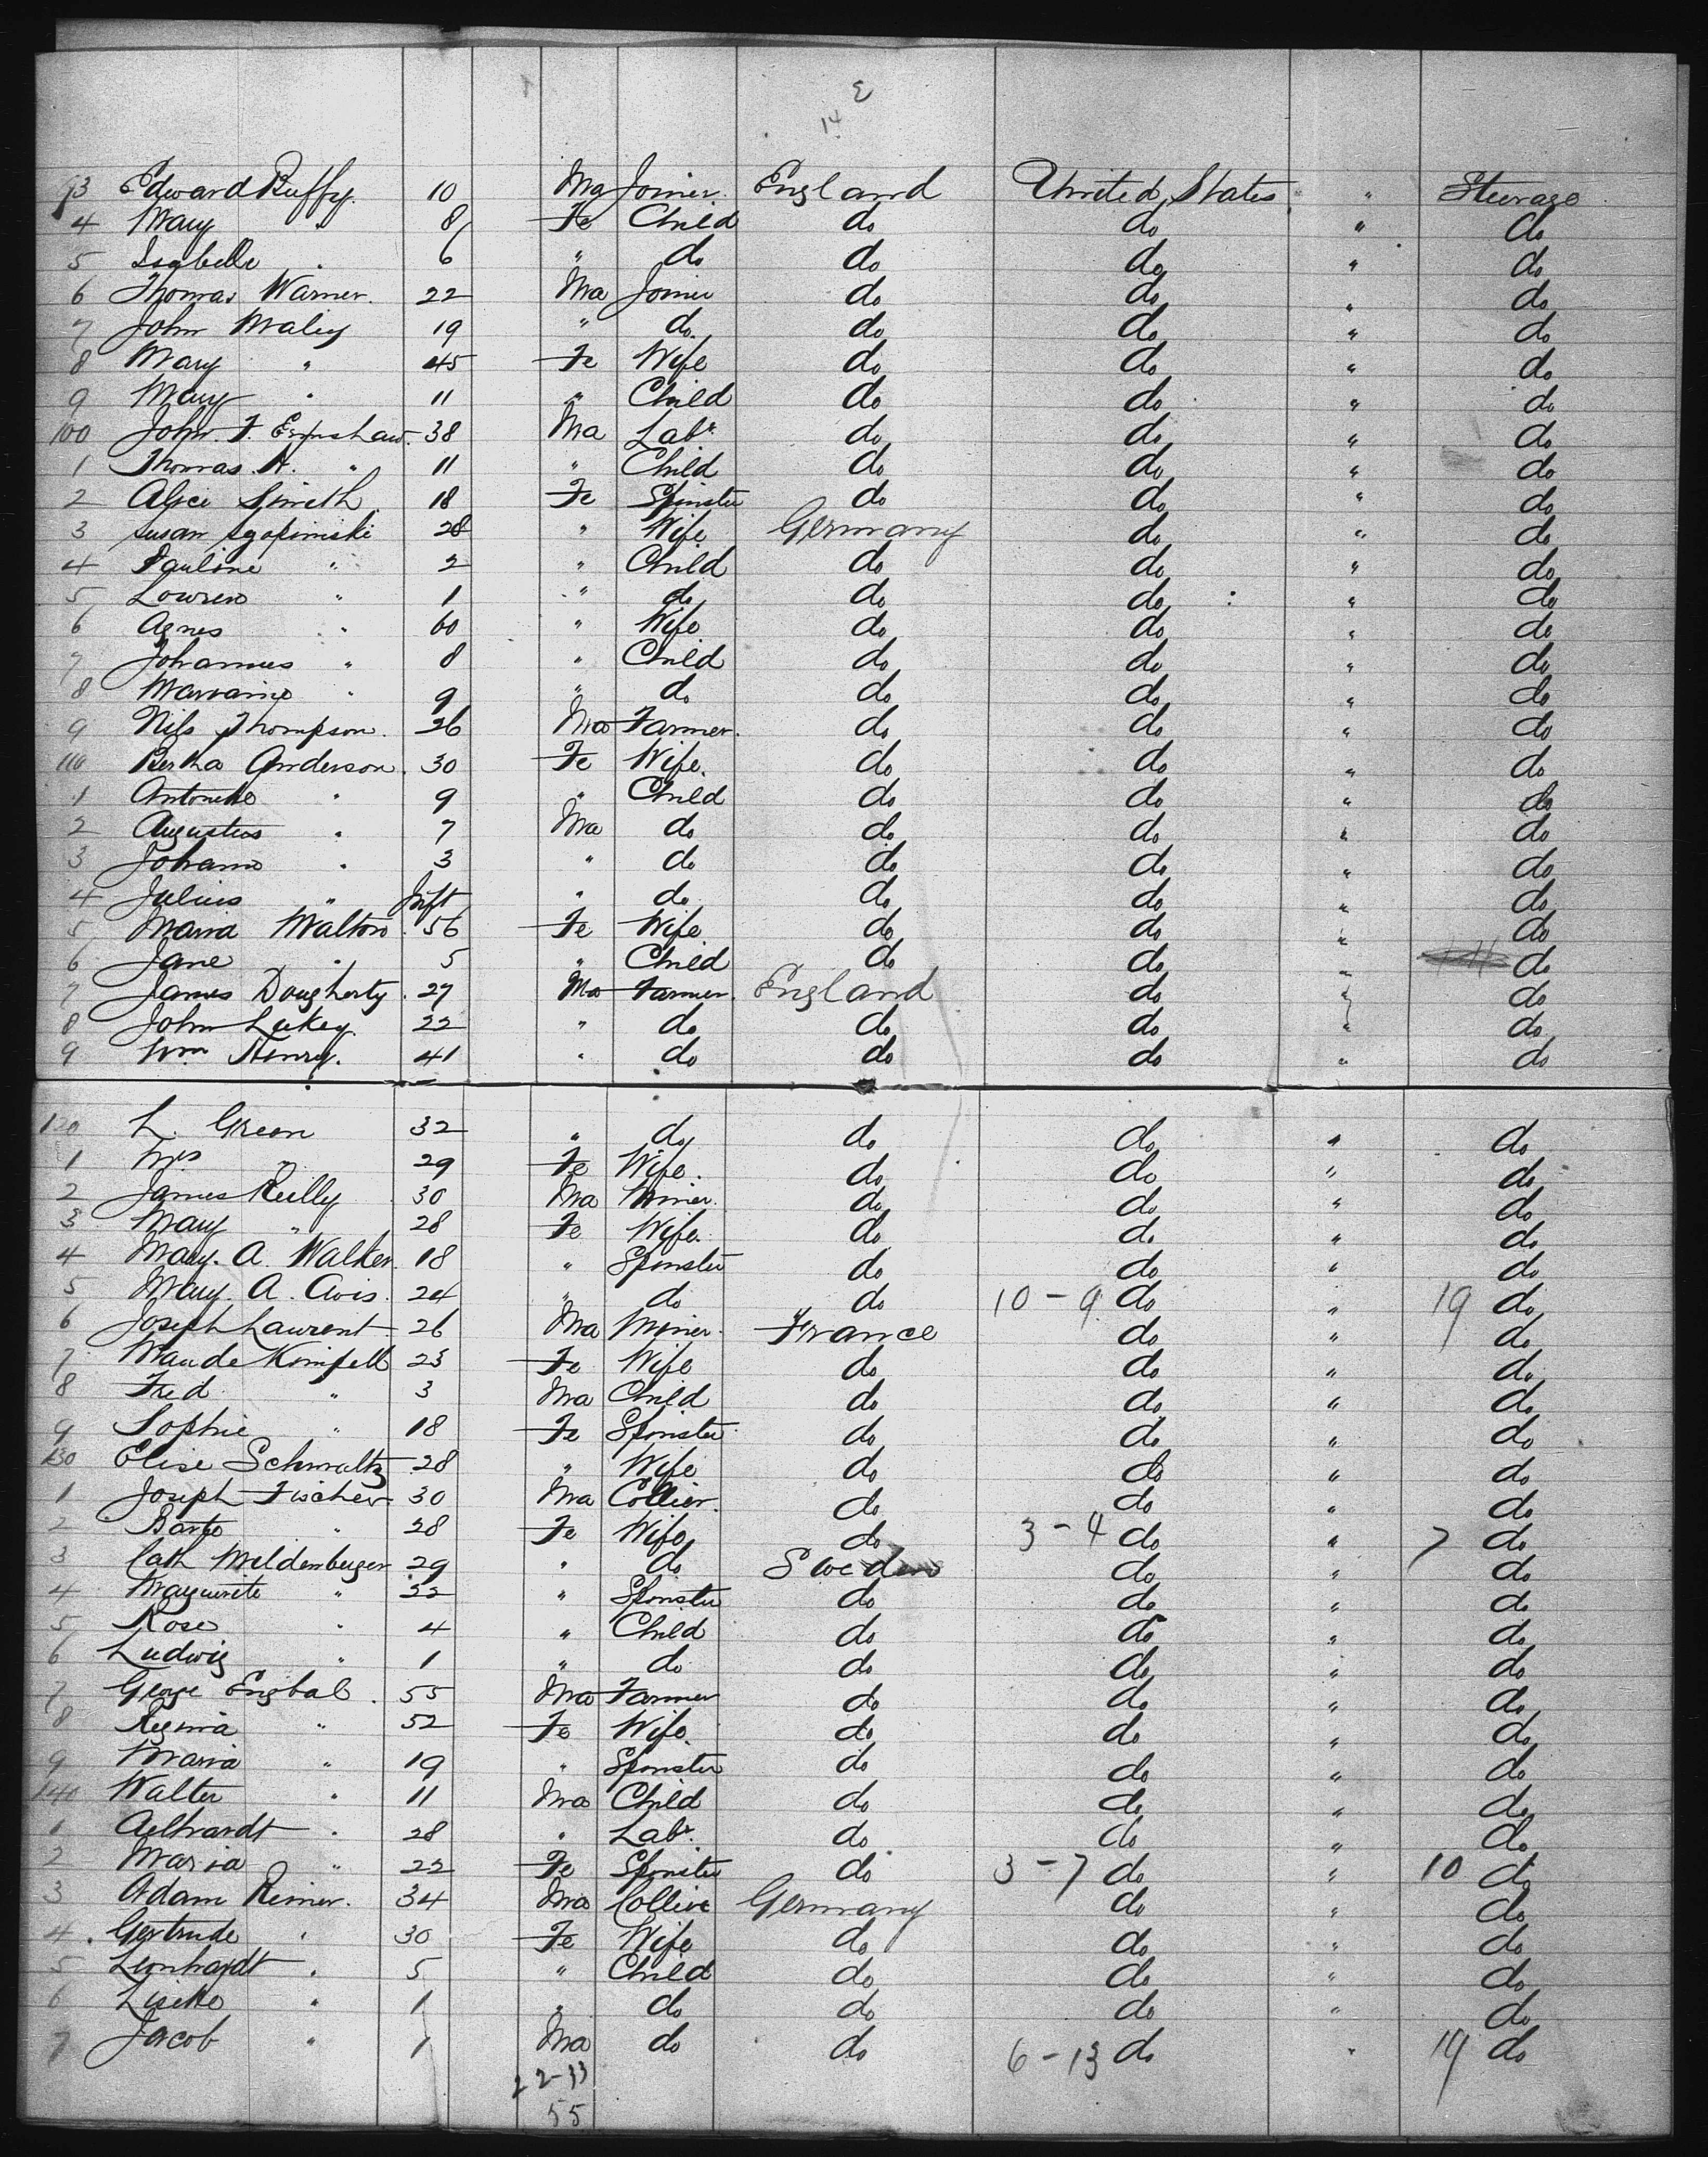 14
93 Edward Buffy. 10 Ma Joiner. England United States " Steerage
4 Mary " 8 Fe Child do do " do
5 Isabella " 6 " do do do " do
6 Thomas Warner. 22 Ma Joiner do do " do
7 John Maley 19 " do do do " do
8 Mary " 45 Fe Wife do do " do
9 Mary " 11 " Child do do " do
100 John. F. Earnshaw. 38 Ma Labr do do " do
1 Thomas. " 11 " Child do do " do
2 Alice Smith 18 Fe Spinster do do " do
3 Susan 28 " Wife Germany do " do
4 Pauline " 2 " Child do do " do
5 " 1 " do do do " do
6 Agnes " 60 " Wife do do " do
7 Johannes " 8 " Child do do " do
8 " 9 " do do do " do
9 Nils Thompson. 26 Ma Farmer. do do " do
110 Bertha Anderson. 30 Fe Wife. do do " do
1 Antonette " 9 " Child do do " do
2 Augustus " 7 Ma do do do " do
3 Johann " 3 " do do do " do
4 Julius " Inft " do do do " do
5 Maria Walton. 56 Fe Wife do do " do
6 Jane " 5 " Child do do " do
7 James Dougherty. 27 Ma Farmer. England do " do
8 John Lukey. 22 " do do do " do
9 Wm Henry. 41 " do do do " do
120 L. Green 32 " do do do " do
1 Mrs " 29 Fe Wife. do do " do
2 James Reilly 30 Ma Miner. do do " do
3 Mary " 28 Fe Wife. do do " do
4 Mary. A. Walker. 18 " Spinster do do " do
5 Mary. A. Avis. 24 " do do 10-9 do " 19 do
6 Joseph Laurent. 26 Ma Miner. France do " do
7 Maude Kimpell 23 Fe Wife do do " do
8 Fred " 3 Ma Child do do " do
9 Sophie " 18 Fe Spinster do do " do
130 Elise Schmaltz 28 " Wife do do " do
1 Joseph Fischer 30 Ma Collier. do do " do
2 " 28 Fe Wife do 3-4 do " 7 do
3 Cath Meldenberger 29 " do Sweden do " do
4 Marguerite " 22 " Spinster do do " do
5 Rose " 4 " Child do do " do
6 Ludwig " 1 " do do do " do
7 George Engbal. 55 Ma Farmer do do " do
8 Regina " 52 Fe Wife. do do " do
9 Maria " 19 " Spinster do do " do
140 Walter " 11 Ma Child do do " do
1 " 28 " Labr. do do " do
2 Maria " 22 Fe Spinster do 3-7 do " 10 do
3 Adam Reimer. 34 Ma Collier Germany do " do
4. Gertrude " 30 Fe Wife do do " do
5 Leonhardt " 5 " Child do do " do
6 Lisette " 1 " do do do " do
7 Jacob " 1 Ma do do 6-13 do " 19 do
22-33
55